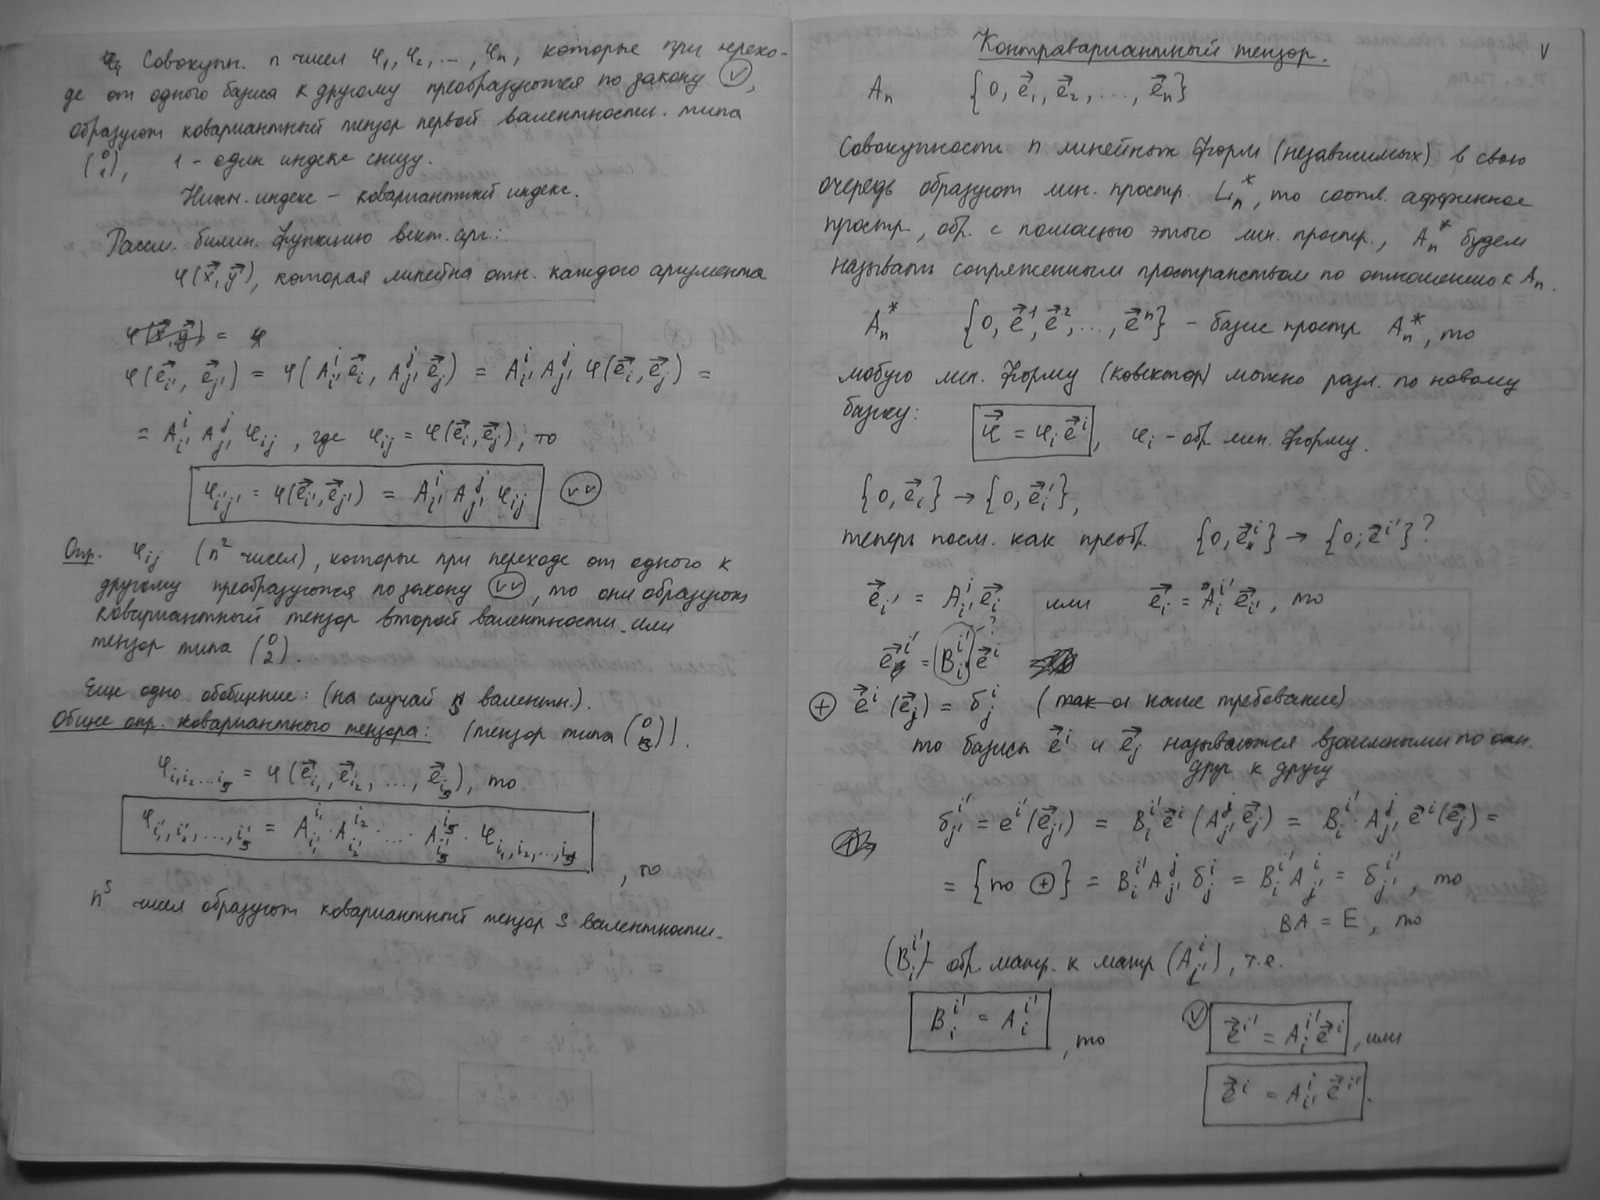 Совокупн. n чисел φ₁, φ₂, ..., φₙ, которые при перехо-
де от одного базиса к другому преобразуются по закону (v),
образуют ковариантный тензор первой валентности. типа
(⁰₁), 1 - один индекс снизу.
Нижн. индекс – ковариантный индекс.
Рассм. билин. функцию вект. арг.:
φ(x⃗, y⃗), которая линейна отн. каждого аргумента
φ(x⃗, y⃗) = φ
φ(e⃗_{i'}, e⃗_{j'}) = φ(A^i_{i'} e⃗_i, A^j_{j'} e⃗_j) = A^i_{i'} A^j_{j'} φ(e⃗_i, e⃗_j) =
= A^i_{i'} A^j_{j'} φ_{ij}, где φ_{ij} = φ(e⃗_i, e⃗_j), то
φ_{i'j'} = φ(e⃗_{i'}, e⃗_{j'}) = A^i_{i'} A^j_{j'} φ_{ij} (vv)
Опр. φ_{ij} (n² чисел), которые при переходе от одного к
другому преобразуются по закону (vv), то они образуют
ковариантный тензор второй валентности или
тензор типа (⁰₂).
Еще одно обобщение: (на случай s валентн.).
Общее опр. ковариантного тензора: (тензор типа (⁰ₛ)).
φ_{i₁i₂...iₛ} = φ(e⃗_{i₁}, e⃗_{i₂}, ..., e⃗_{iₛ}), то
φ_{i'₁, i'₂, ..., i'ₛ} = A^{i₁}_{i'₁} · A^{i₂}_{i'₂} · ... A^{iₛ}_{i'ₛ} · φ_{i₁, i₂, ..., iₛ}, то
nˢ чисел образуют ковариантный тензор s валентности.
Контравариантный тензор. v
Aₙ {0, e⃗₁, e⃗₂, ..., e⃗ₙ}
Совокупность n линейных форм (независимых) в свою
очередь образуют лин. простр. Lₙ*, то соотв. аффинное
простр., обр. с помощью этого лин. простр., Aₙ* будем
называть сопряженным пространством по отношению к Aₙ.
Aₙ* {0, e⃗¹, e⃗², ..., e⃗ⁿ} – базис простр. Aₙ*, то
любую лин. форму (ковектор) можно разл. по новому
базису: φ⃗ = φ_i e⃗^i, φ_i - обр. лин. форму.
{0, e⃗_i} → {0, e⃗_i'},
теперь посм. как преобр. {0, e⃗^i} → {0; e⃗^{i'}}?
e⃗_{i'} = A^i_{i'} e⃗_i или e⃗_i = A^{i'}_i e⃗_{i'}, то
e⃗^{i'} = (B^{i'}_i) e⃗^i ?
(+) e⃗^i (e⃗_j) = δ^i_j (так наше требование)
то базисы e⃗^i и e⃗_j называются взаимными по отн.
друг к другу
δ^{i'}_{j'} = e^{i'}(e⃗_{j'}) = B^{i'}_i e⃗^i (A^j_{j'} e⃗_j) = B^{i'}_i · A^j_{j'} e⃗^i(e⃗_j) =
= {по (+)} = B^{i'}_i A^j_{j'} δ^i_j = B^{i'}_i A^i_{j'} = δ^{i'}_{j'}, то
BA = E, то
(B^{i'}_i) - обр. матр. к матр (A^i_{i'}), т.е.
B^{i'}_i = A^{i'}_i, то (v) e⃗^{i'} = A^{i'}_i e⃗^i, или
e⃗^i = A^i_{i'} e⃗^{i'}.